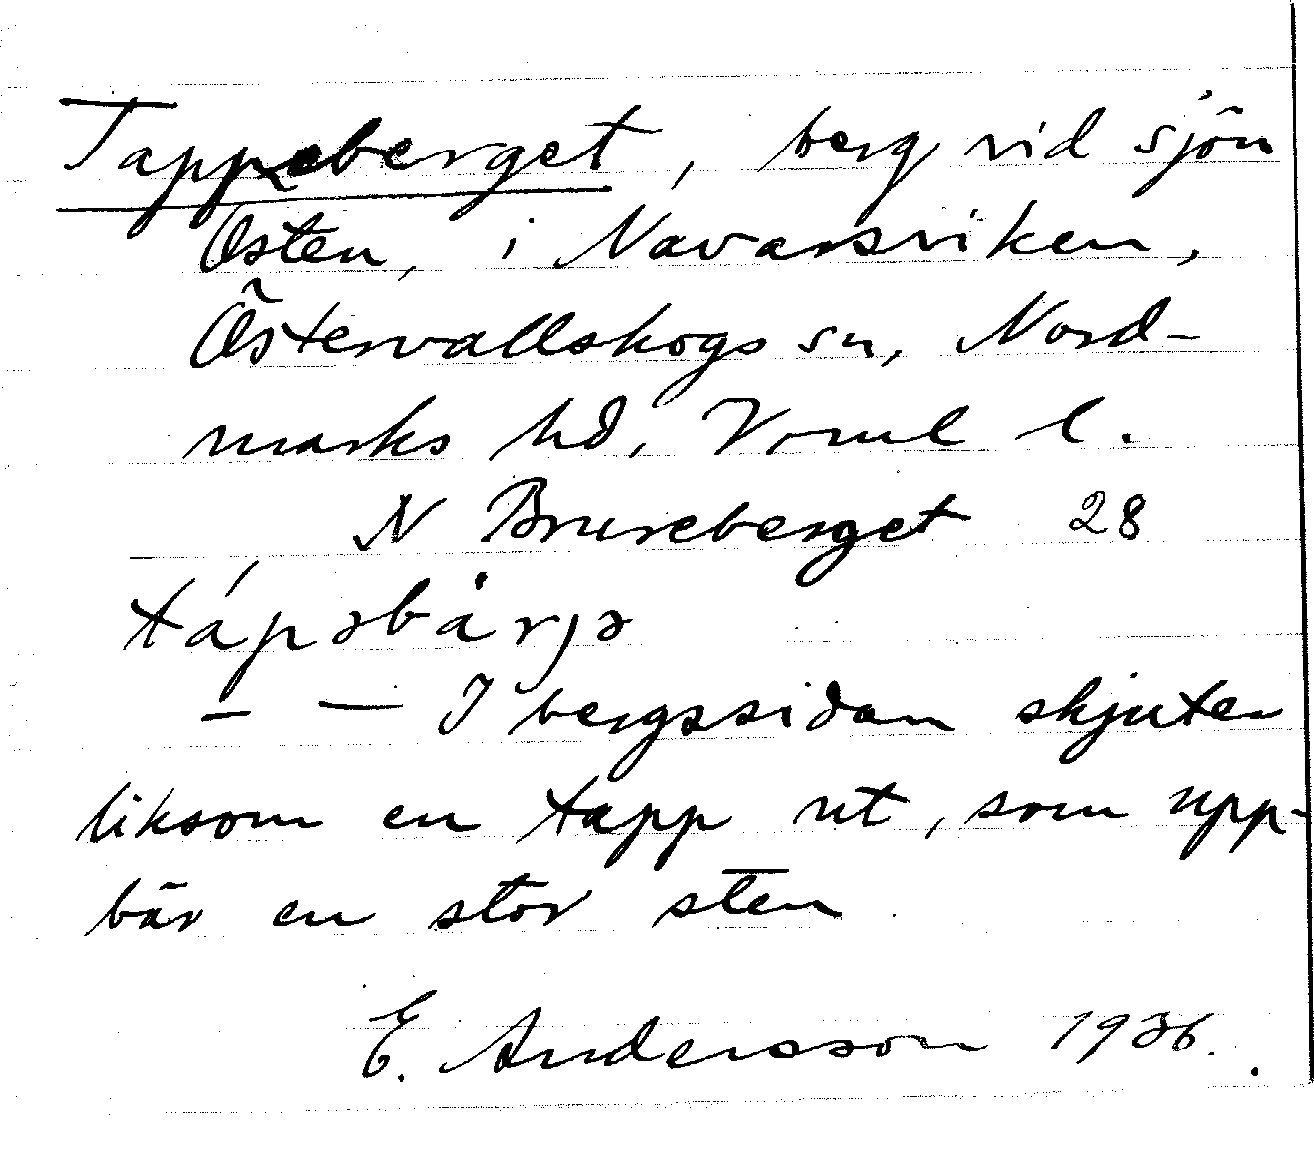 Tappeberget, berg vid sjön
Östen, i Navarsviken,
Östervallskogs sn, Nord-
marks hd, Vrml l.
N Brureberget 28
tápəbärjə
– — I bergssidan skjuter
liksom en tapp ut, som upp-
bär en stor sten
E. Andersson 1936.